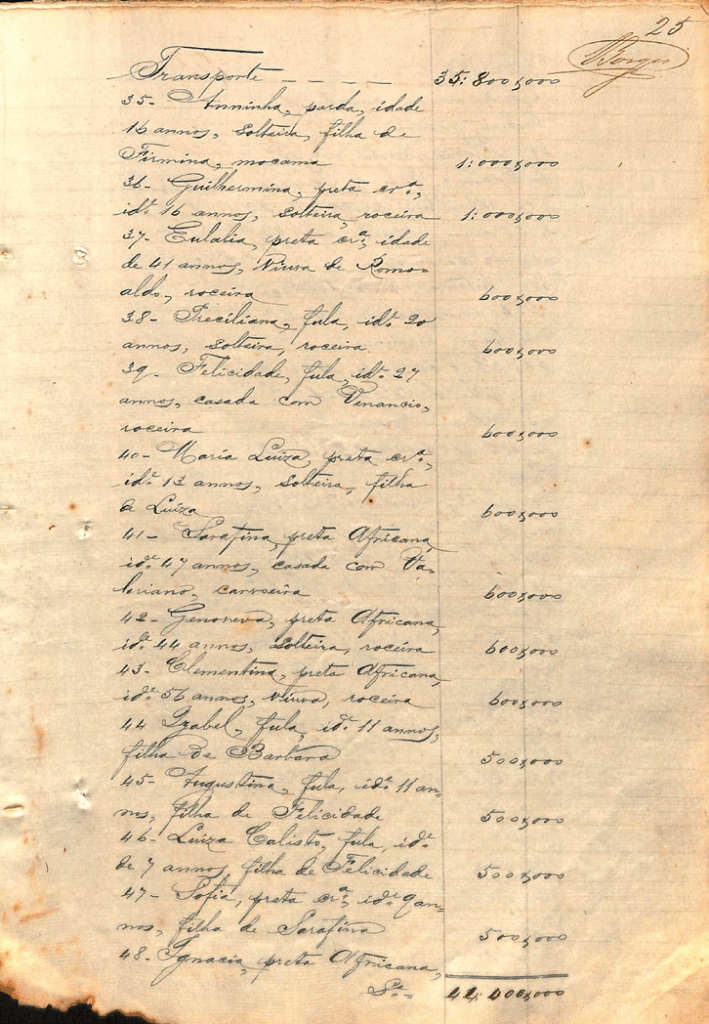 25
Borges
Transporte - - - - 35:800$000
35- Anninha, parda, idade
16 annos, solteira, filha de
Firmina, mocama 1:000$000
36- Guilhermina, preta crª,
idᵉ 16 annos, solteira, roceira 1:000$000
37- Eulalia, preta crª, idade
de 41 annos, Viuva de Romo-
aldo, roceira 600$000
38- Preciliana, fula, idᵉ 20
annos, solteira, roceira 600$000
39- Felicidade, fula, idᵉ 27
annos, casada com Venancio,
roceira 600$000
40- Maria Luiza, preta crª,
idᵉ 13 annos, solteira, filha
de Luiza 600$000
41- Sarafina, preta Africana,
idᵉ 47 annos, casada com Va-
leriano, carvoeira 600$000
42- Genoneva, preta Africana,
idᵉ 44 annos, solteira, roceira 600$000
43- Clementina, preta Africana,
idᵉ 56 annos, viuva, roceira 600$000
44 Izabel, fula, idᵉ 11 annos,
filha de Barbara 500$000
45- Augustina, fula, idᵉ 11 an-
nos, filha de Felicidade 500$000
46- Luiza Calisto, fula, idᵉ
de 7 annos filha de Felicidade 500$000
47- Sofia, preta crª, idᵉ 9 an-
nos, filha de Sarafina 500$000
48- Ignacia, preta Africana,
Sª- 44:400$000